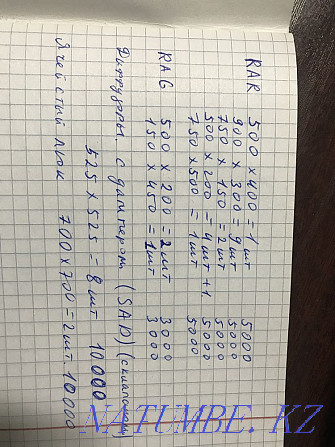 KAR 500 x 400 = 1 шт 5000
900 x 300 = 9 шт 5000
750 x 150 = 2 шт 5000
500 x 200 = 4 шт + 1 5000
750 x 500 = 1 шт 5000
KAG 500 x 200 = 2 шт 3000
150 x 450 = 1 шт 3000
Диффузоры с дампером (SAD)
525 x 525 = 8 шт 10 000
Ячеистый люк 700 x 700 = 2 шт. 10 000
NATUMBE.KZ